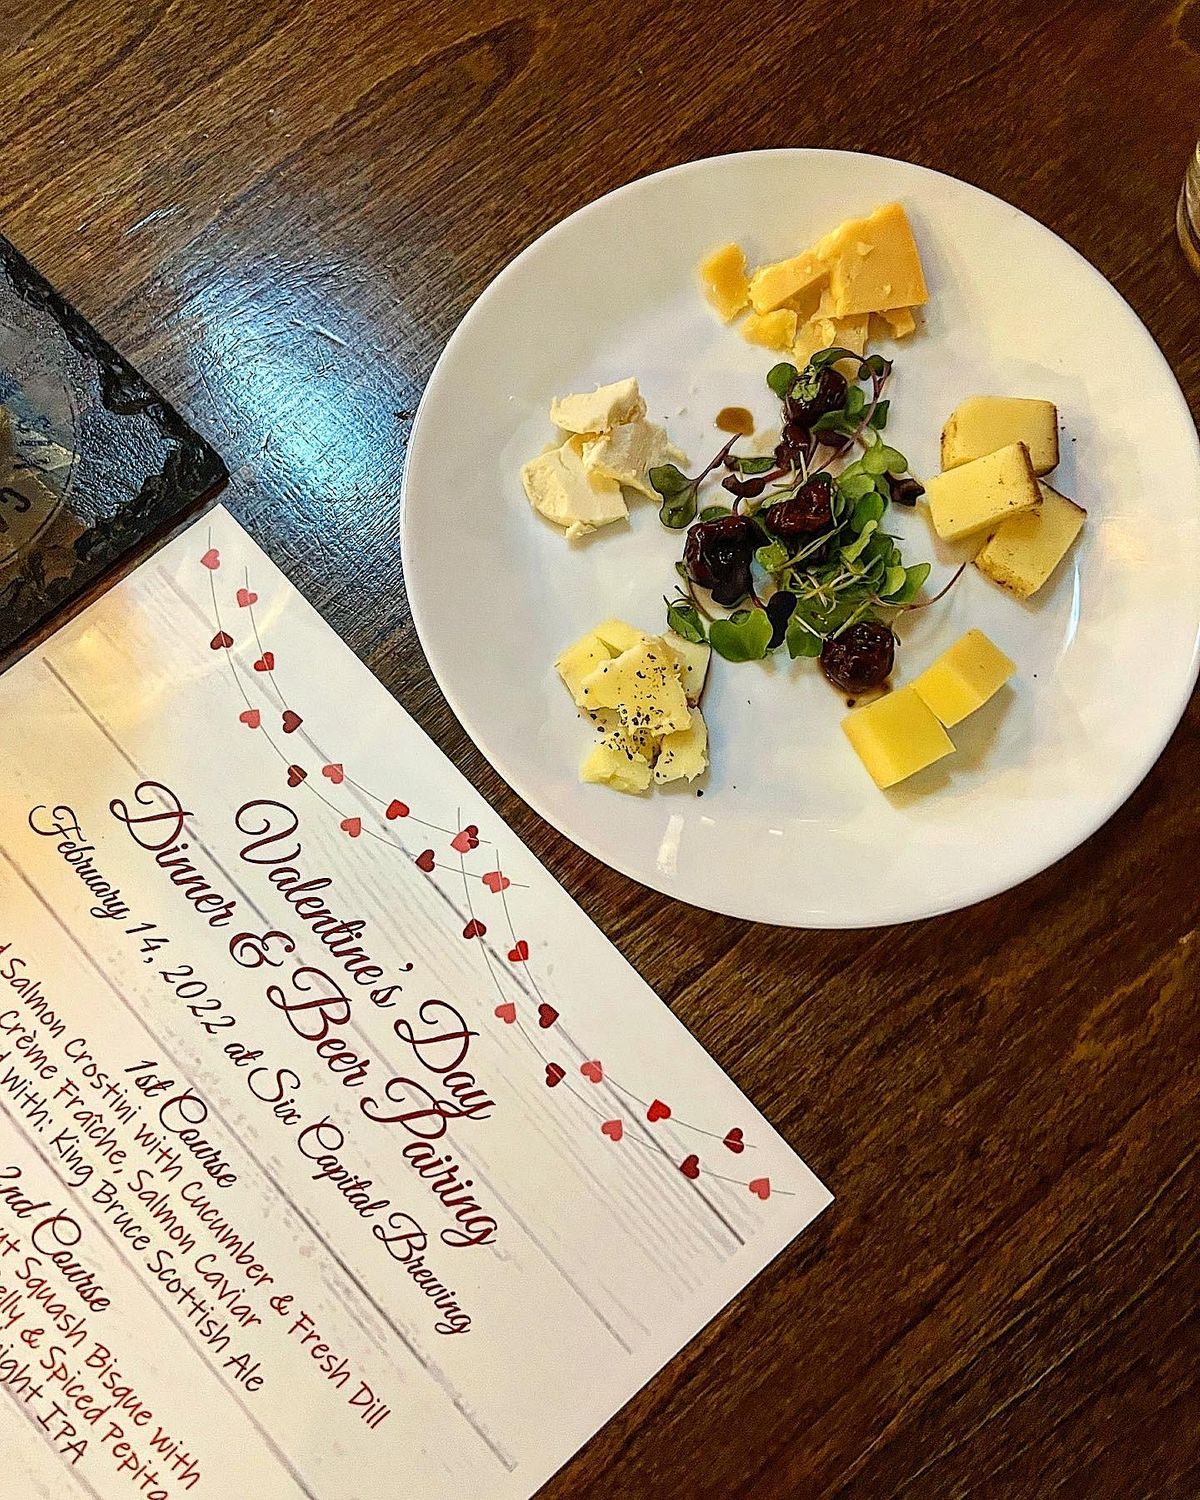 Valentine's Day
Dinner & Beer Pairing
February 14, 2022 at Six Capital Brewing
1st Course
Salmon Crostini with Cucumber & Fresh Dill
Crème Fraîche, Salmon Caviar
With: King Bruce Scottish Ale
2nd Course
Squash Bisque with
& Spiced
IPA